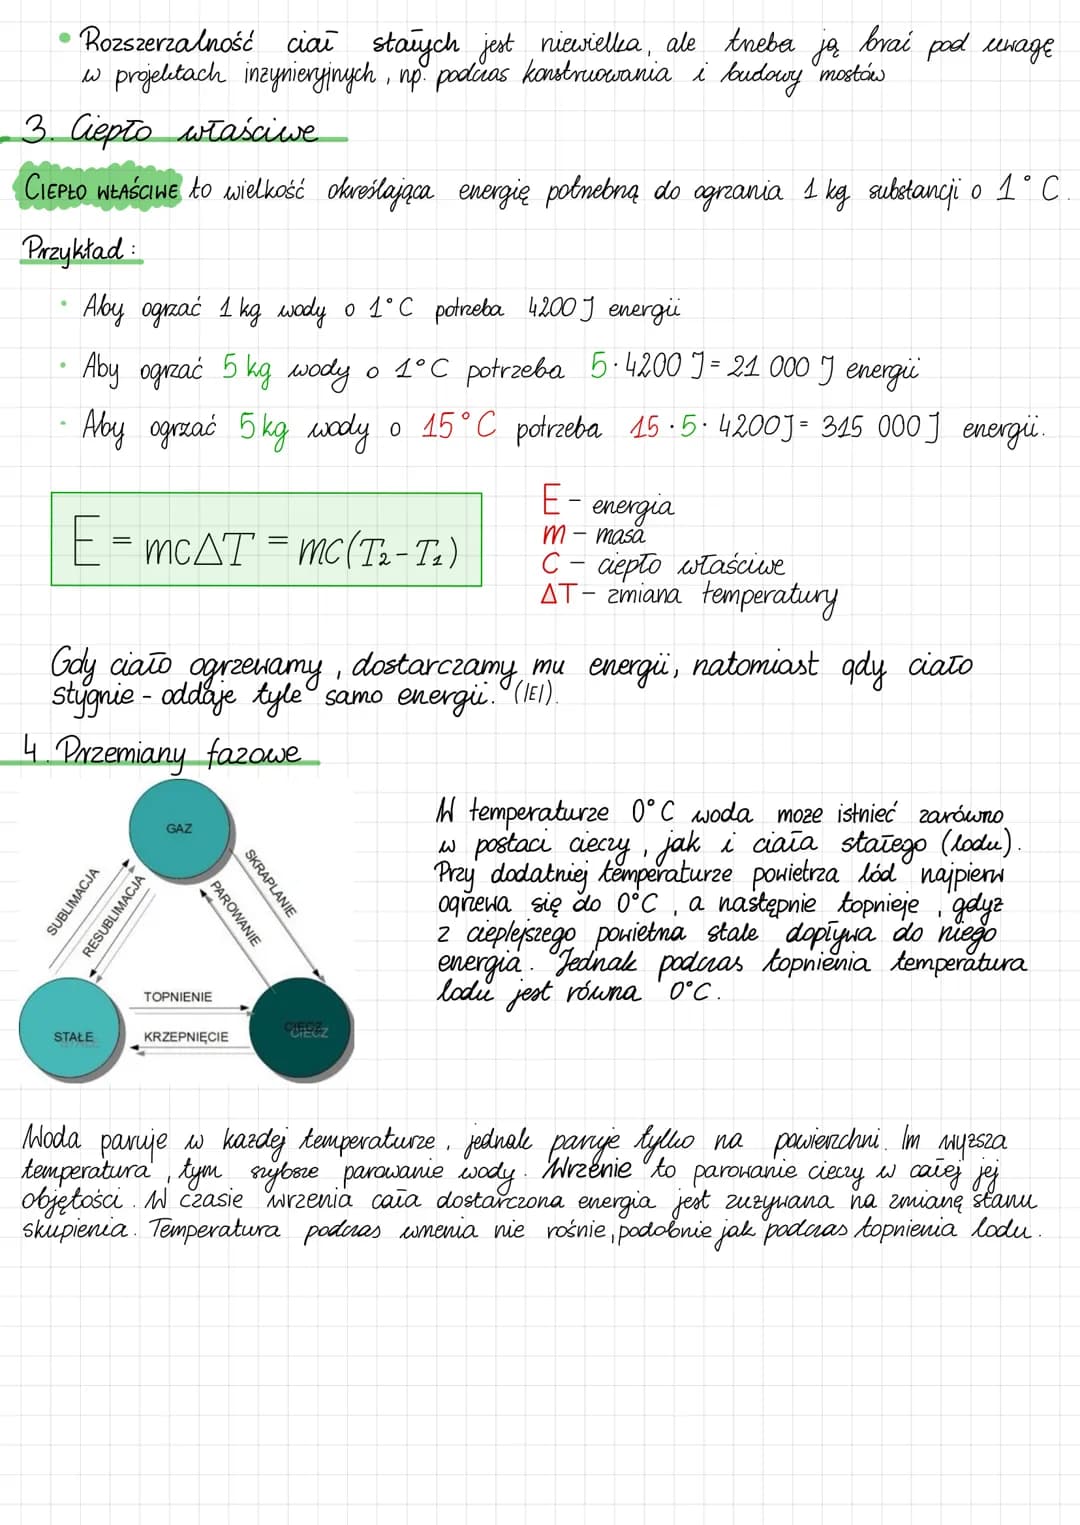 • Rozszerzalność ciał stałych jest niewielka, ale trzeba ją brać pod uwagę
w projektach inżynieryjnych, np. podczas konstruowania i budowy mostów
3. Ciepło właściwe
CIEPŁO WŁAŚCIWE to wielkość określająca energię potrzebną do ogrzania 1 kg substancji o 1°C.
Przykład:
• Aby ogrzać 1 kg wody o 1°C potrzeba 4200 J energii
• Aby ogrzać 5 kg wody o 1°C potrzeba 5·4200 J = 21 000 J energii
• Aby ogrzać 5 kg wody o 15°C potrzeba 15·5·4200J = 315 000 J energii.
E = mc∆T = mc(T₂-T₁)
E - energia
m - masa
C - ciepło właściwe
∆T - zmiana temperatury
Gdy ciało ogrzewamy, dostarczamy mu energii, natomiast gdy ciało
stygnie - oddaje tyle samo energii. (|E|).
4. Przemiany fazowe
GAZ
SUBLIMACJA
RESUBLIMACJA
SKRAPLANIE
PAROWANIE
TOPNIENIE
STAŁE
KRZEPNIĘCIE
CIECZ
W temperaturze 0°C woda może istnieć zarówno
w postaci cieczy, jak i ciała stałego (lodu).
Przy dodatniej temperaturze powietrza lód najpierw
ogrzewa się do 0°C, a następnie topnieje, gdyż
z cieplejszego powietrza stale dopływa do niego
energia. Jednak podczas topnienia temperatura
lodu jest równa 0°C.
Woda paruje w każdej temperaturze, jednak paruje tylko na powierzchni. Im wyższa
temperatura, tym szybsze parowanie wody. Wrzenie to parowanie cieczy w całej jej
objętości. W czasie wrzenia cała dostarczona energia jest zużywana na zmianę stanu
skupienia. Temperatura podczas wrzenia nie rośnie, podobnie jak podczas topnienia lodu.